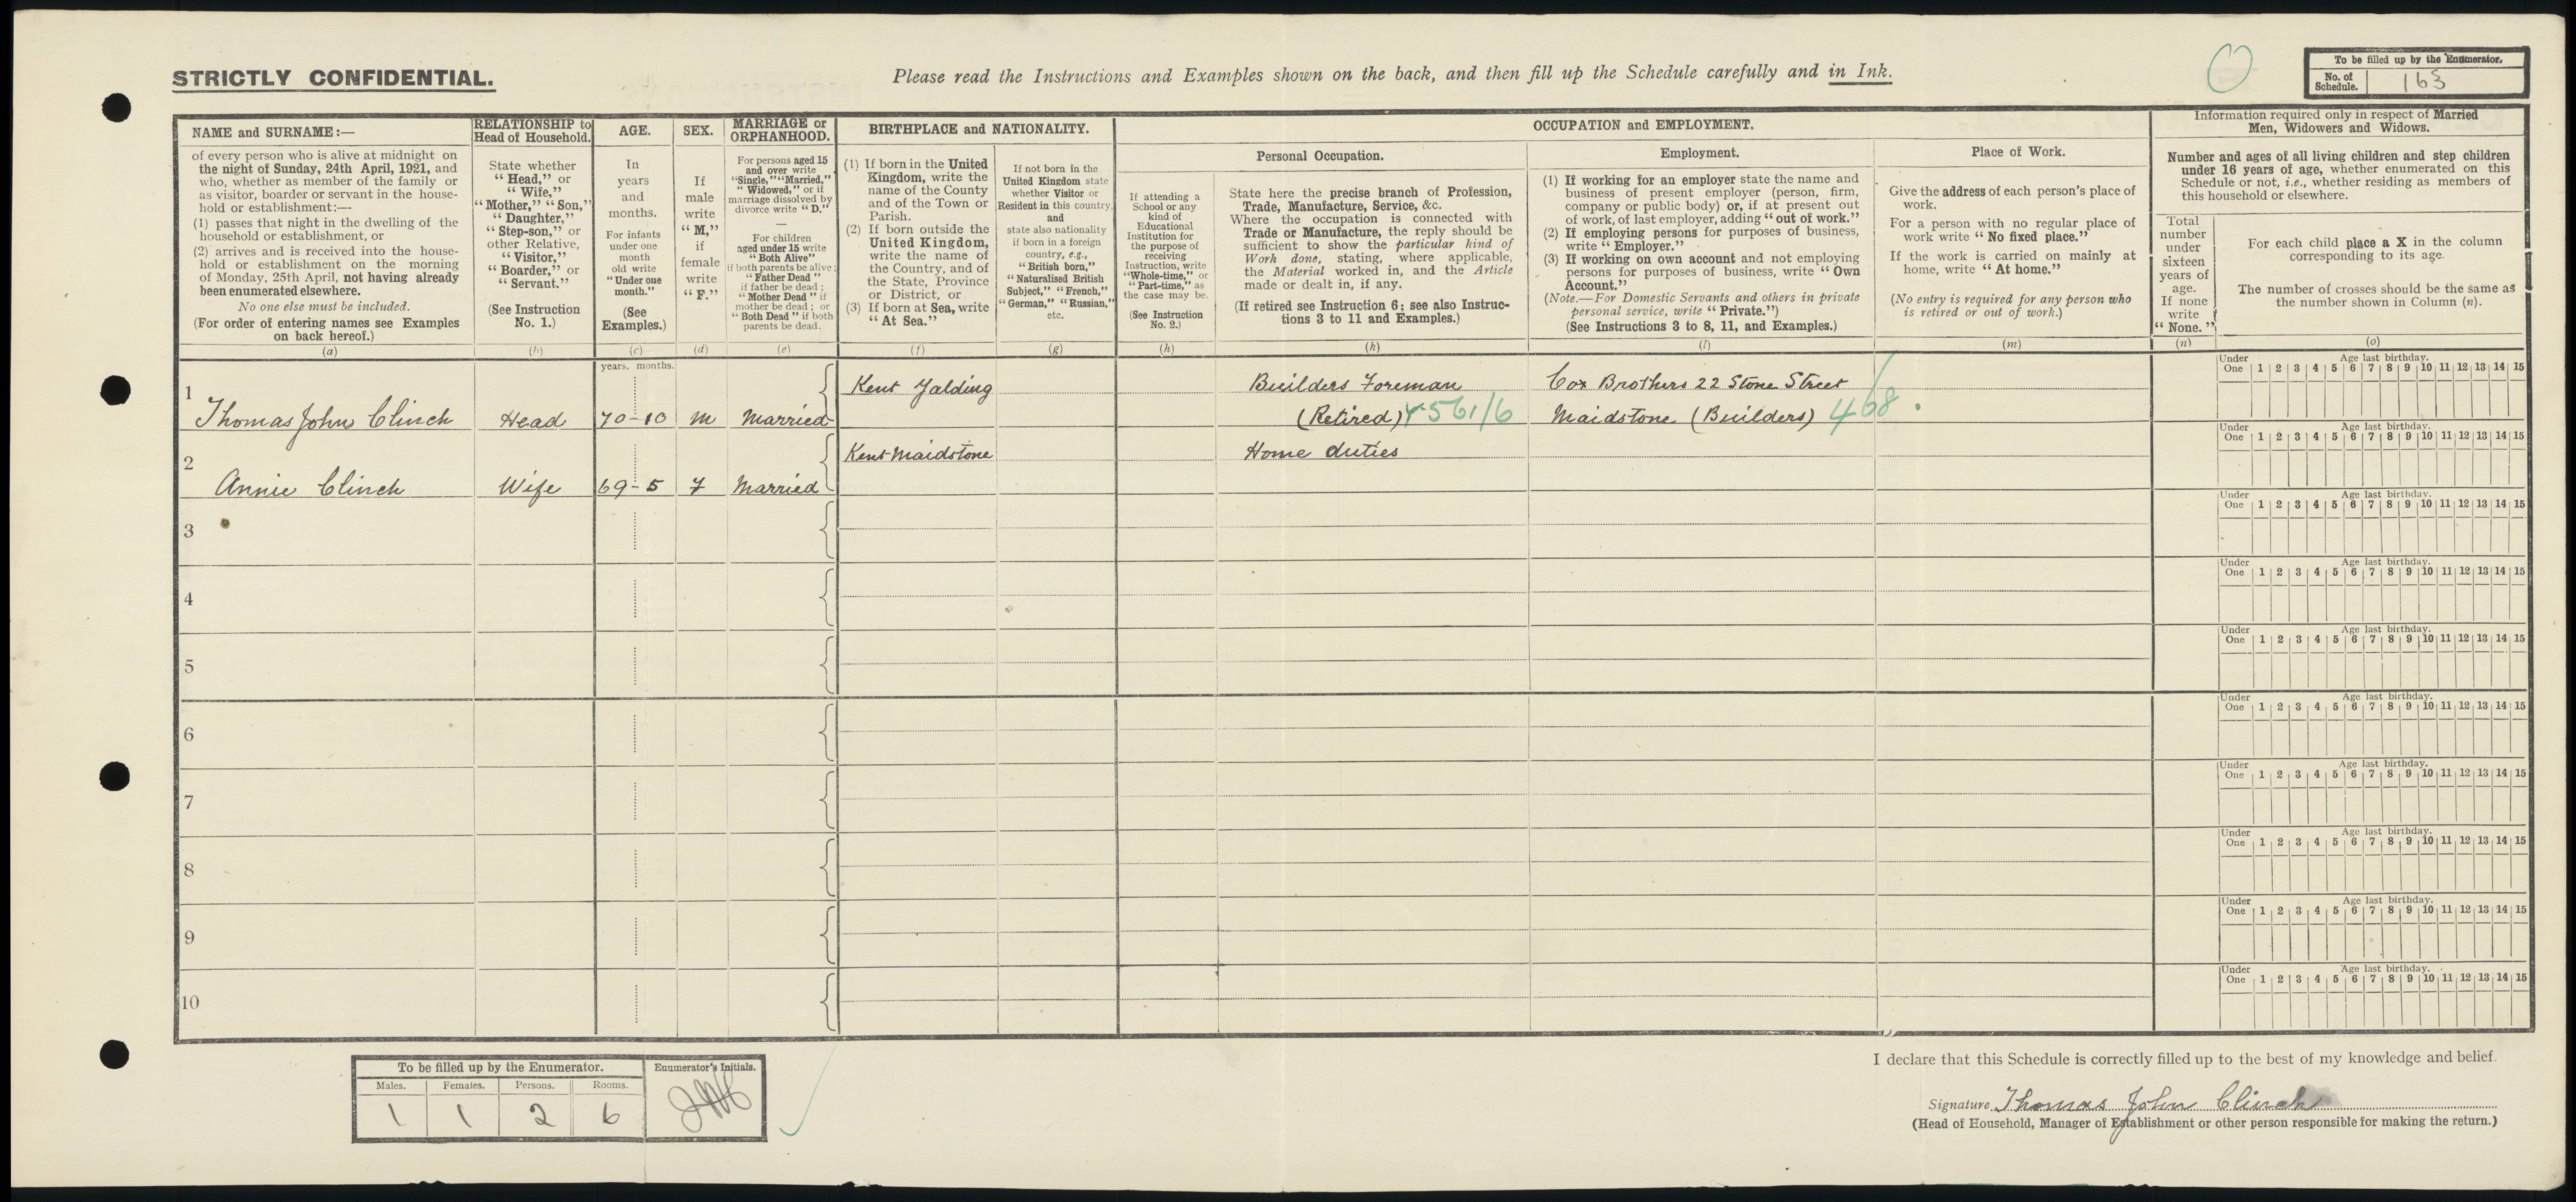 STRICTLY CONFIDENTIAL.
Please read the Instructions and Examples shown on the back, and then fill up the Schedule carefully and in Ink.
To be filled up by the Enumerator.
No. of Schedule. 163
NAME and SURNAME:—
of every person who is alive at midnight on
the night of Sunday, 24th April, 1921, and
who, whether as member of the family or
as visitor, boarder or servant in the house-
hold or establishment:—
(1) passes that night in the dwelling of the
household or establishment, or
(2) arrives and is received into the house-
hold or establishment on the morning
of Monday, 25th April, not having already
been enumerated elsewhere.
No one else must be included.
(For order of entering names see Examples
on back hereof.)
(a)
RELATIONSHIP to
Head of Household.
State whether
"Head," or
"Wife,"
"Mother," "Son,"
"Daughter,"
"Step-son," or
other Relative,
"Visitor,"
"Boarder," or
"Servant."
(See Instruction
No. 1.)
(b)
AGE.
In
years
and
months.
For infants
under one
month
old write
"Under one
month."
(See
Examples.)
(c)
SEX.
If
male
write
"M,"
if
female
write
"F."
(d)
MARRIAGE or
ORPHANHOOD.
For persons aged 15
and over write
"Single," "Married,"
"Widowed," or if
marriage dissolved by
divorce write "D."
—
For children
aged under 15 write
"Both Alive"
if both parents be alive;
"Father Dead"
if father be dead;
"Mother Dead" if
mother be dead; or
"Both Dead" if both
parents be dead.
(e)
BIRTHPLACE and NATIONALITY.
(1) If born in the United
Kingdom, write the
name of the County
and of the Town or
Parish.
(2) If born outside the
United Kingdom,
write the name of
the Country, and of
the State, Province
or District, or
(3) If born at Sea, write
"At Sea."
(f)
If not born in the
United Kingdom state
whether Visitor or
Resident in this country,
and
state also nationality
if born in a foreign
country, e.g.,
"British born,"
"Naturalised British
Subject," "French,"
"German," "Russian,"
etc.
(g)
OCCUPATION and EMPLOYMENT.
If attending a
School or any
kind of
Educational
Institution for
the purpose of
receiving
Instruction, write
"Whole-time," or
"Part-time," as
the case may be.
(See Instruction
No. 2.)
(h)
Personal Occupation.
State here the precise branch of Profession,
Trade, Manufacture, Service, &c.
Where the occupation is connected with
Trade or Manufacture, the reply should be
sufficient to show the particular kind of
Work done, stating, where applicable,
the Material worked in, and the Article
made or dealt in, if any.
(If retired see Instruction 6; see also Instruc-
tions 3 to 11 and Examples.)
(k)
Employment.
(1) If working for an employer state the name and
business of present employer (person, firm,
company or public body) or, if at present out
of work, of last employer, adding "out of work."
(2) If employing persons for purposes of business,
write "Employer."
(3) If working on own account and not employing
persons for purposes of business, write "Own
Account."
(Note.—For Domestic Servants and others in private
personal service, write "Private.")
(See Instructions 3 to 8, 11, and Examples.)
(l)
Place of Work.
Give the address of each person's place of
work.
For a person with no regular place of
work write "No fixed place."
If the work is carried on mainly at
home, write "At home."
(No entry is required for any person who
is retired or out of work.)
(m)
Information required only in respect of Married
Men, Widowers and Widows.
Number and ages of all living children and step children
under 16 years of age, whether enumerated on this
Schedule or not, i.e., whether residing as members of
this household or elsewhere.
Total
number
under
sixteen
years of
age.
If none
write
"None."
(n)
For each child place a X in the column
corresponding to its age.
The number of crosses should be the same as
the number shown in Column (n).
(o)
years. months.
1
Thomas John Clinch Head 70-10 M Married
Kent Yalding
Builders Foreman
(Retired) 561/6
Cox Brothers 22 Stone Street
Maidstone (Builders) 468.
Under One Age last birthday. 1 2 3 4 5 6 7 8 9 10 11 12 13 14 15
2
Annie Clinch Wife 69-5 F Married
Kent Maidstone
Home duties
Under One Age last birthday. 1 2 3 4 5 6 7 8 9 10 11 12 13 14 15
3
Under One Age last birthday. 1 2 3 4 5 6 7 8 9 10 11 12 13 14 15
4
Under One Age last birthday. 1 2 3 4 5 6 7 8 9 10 11 12 13 14 15
5
Under One Age last birthday. 1 2 3 4 5 6 7 8 9 10 11 12 13 14 15
6
Under One Age last birthday. 1 2 3 4 5 6 7 8 9 10 11 12 13 14 15
7
Under One Age last birthday. 1 2 3 4 5 6 7 8 9 10 11 12 13 14 15
8
Under One Age last birthday. 1 2 3 4 5 6 7 8 9 10 11 12 13 14 15
9
Under One Age last birthday. 1 2 3 4 5 6 7 8 9 10 11 12 13 14 15
10
Under One Age last birthday. 1 2 3 4 5 6 7 8 9 10 11 12 13 14 15
To be filled up by the Enumerator.
Males. Females. Persons. Rooms.
1 1 2 6
Enumerator's Initials.
I declare that this Schedule is correctly filled up to the best of my knowledge and belief.
Signature Thomas John Clinch
(Head of Household, Manager of Establishment or other person responsible for making the return.)